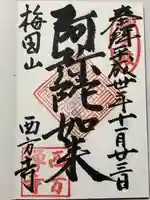 奉拝 平成卅年十一月廿三日
阿弥陀如来
梅園山
西方寺